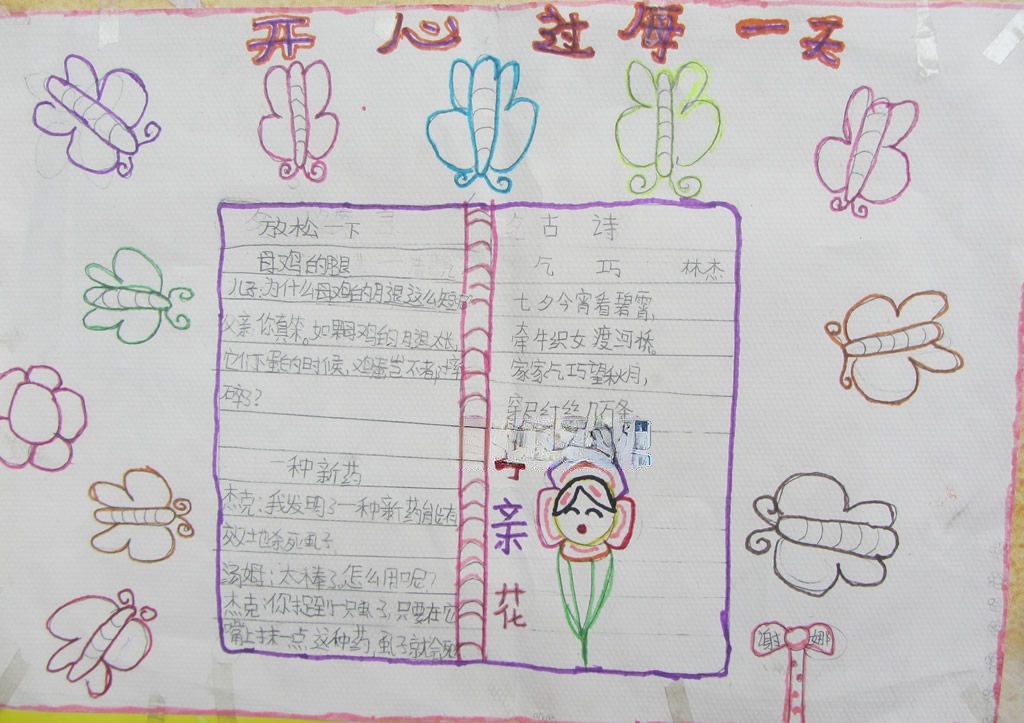 开心过每一天
放松一下
母鸡的腿
儿子:为什么母鸡的腿这么短
父亲:你真笨。如果母鸡的腿太长,
它们下蛋的时候,鸡蛋岂不都摔
碎了?
一种新药
杰克:我发明了一种新药能有
效地杀死虱子
汤姆:太棒了,怎么用呢?
杰克:你捉到一只虫子,只要在它
嘴上抹一点这种药,虱子就会死
古诗
乞巧 林杰
七夕今宵看碧霄,
牵牛织女渡河桥。
家家乞巧望秋月,
穿尽红丝几万条
亲
花
谢娜